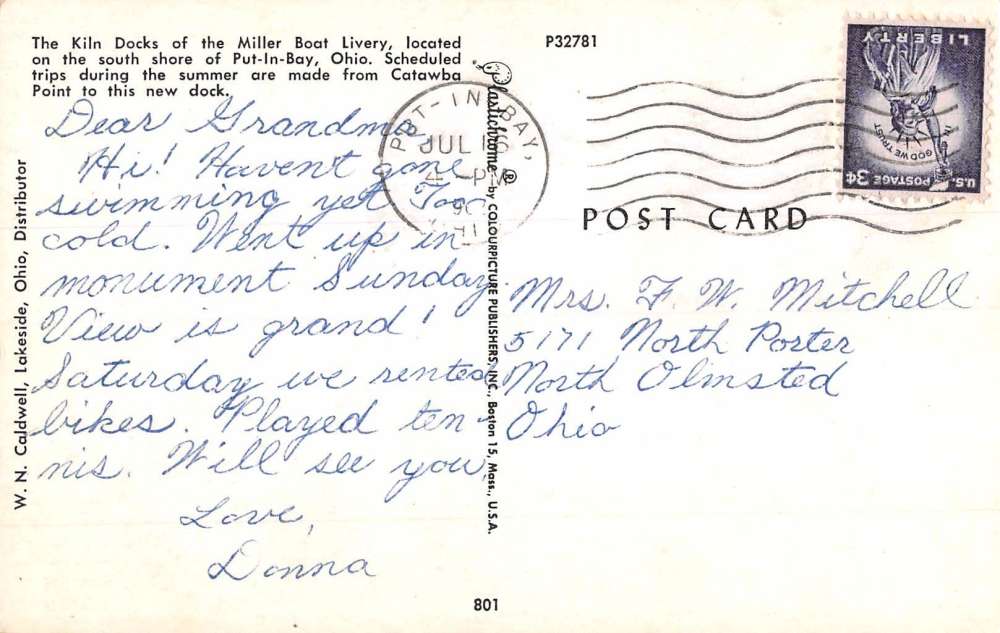 The Kiln Docks of the Miller Boat Livery, located
on the south shore of Put-In-Bay, Ohio. Scheduled
trips during the summer are made from Catawba
Point to this new dock.
P32781
Dear Grandma
Hi! Havent gone
swimming yet Too
cold. Went up in
monument Sunday.
View is grand!
Saturday we rented
bikes. Played ten-
nis. Will see you.
Love,
Donna
W. N. Caldwell, Lakeside, Ohio, Distributor
Plastichrome ® by COLOURPICTURE PUBLISHERS, INC., Boston 15, Mass., U.S.A.
PUT-IN-BAY,
JUL 16
PM
LIBERTY
IN GOD WE TRUST
U.S. POSTAGE 3¢
POST CARD
Mrs. F. W. Mitchell
5171 North Porter
North Olmsted
Ohio
801